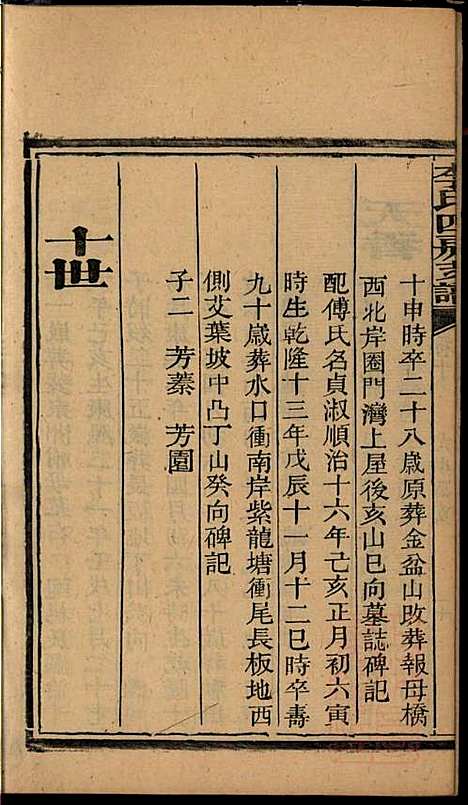 李氏四房支譜
十申時卒二十八歲原葬金盆山改葬報母橋
西北岸圈門灣上屋後亥山巳向墓誌碑記
配傅氏名貞淑順治十六年己亥正月初六寅
時生乾隆十三年戊辰十一月十二巳時卒壽
九十歲葬水口衝南岸紫龍塘衝尾長板地西
側艾葉坡中凸丁山癸向碑記
子二 芳蓁 芳園
十世